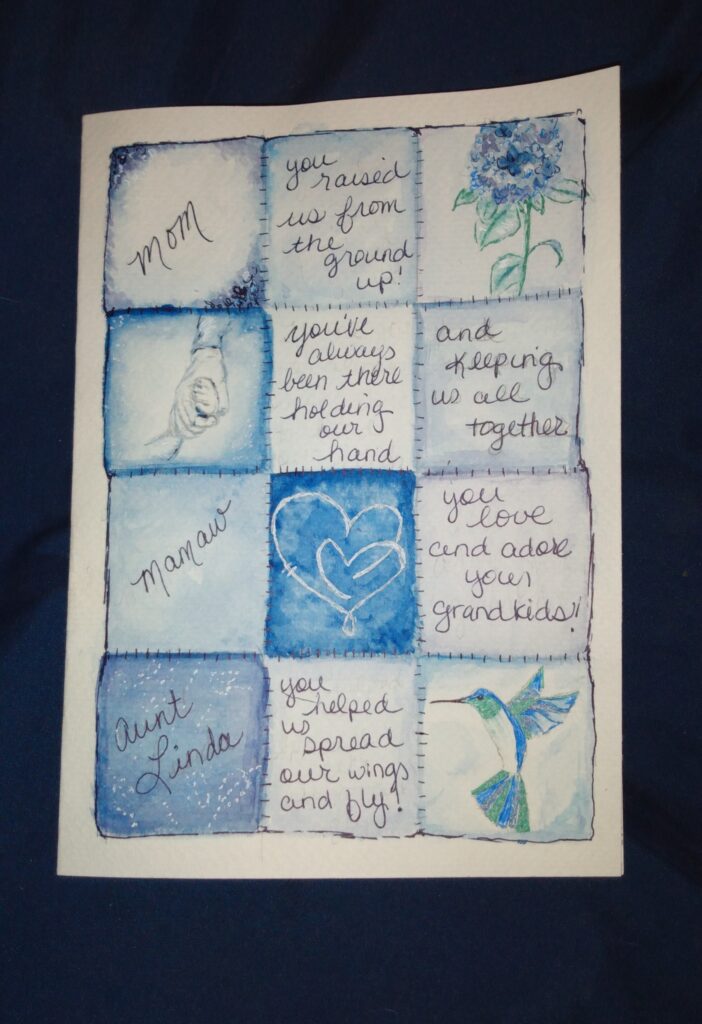 mom
you
raised
us from
the
ground
up!
you've
always
been there
holding
our
hand
and
keeping
us all
together
mamaw
you
love
and adore
your
grandkids!
Aunt
Linda
you
helped
us
spread
our wings
and fly!